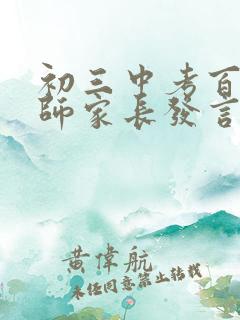 初三中考百
師家長發言
黄偉航
未经同意禁止转载